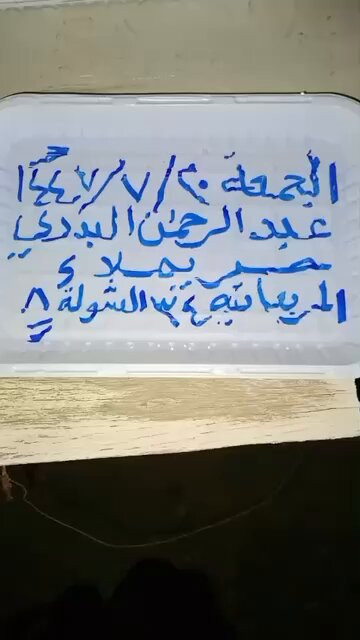 الجمعة ٢٠/٧/١٤٤٧هـ
عبد الرحمن البدري
مصر يملا ء
المربعانيه ٤ الشولة ٨